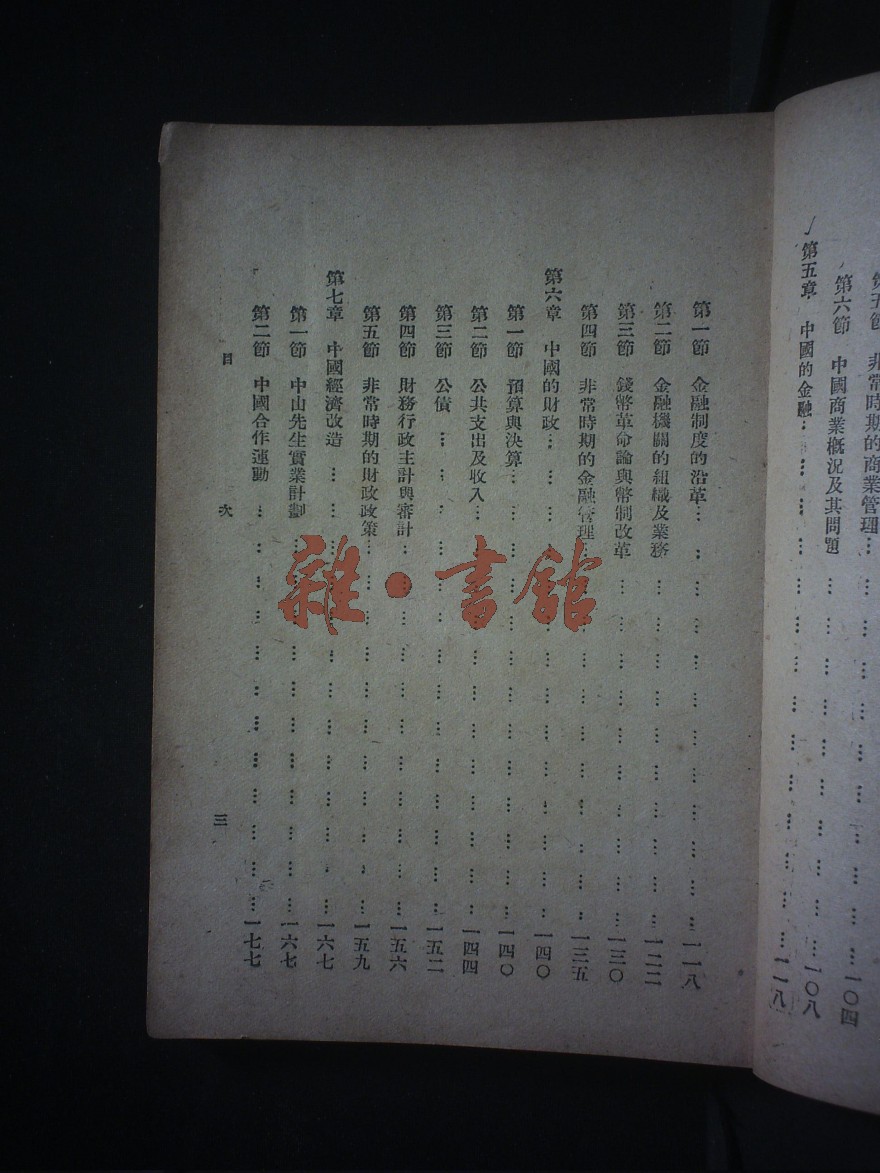 第五節 非常時期的商業管理……一〇四
第六節 中國商業概況及其問題……一〇八
第五章 中國的金融……一一八
第一節 金融制度的沿革……一一八
第二節 金融機關的組織及業務……一二二
第三節 錢幣革命論與幣制改革……一三〇
第四節 非常時期的金融管理……一三五
第六章 中國的財政……一四〇
第一節 預算與決算……一四〇
第二節 公共支出及收入……一四四
第三節 公債……一五二
第四節 財務行政主計與審計……一五六
第五節 非常時期的財政政策……一五九
第七章 中國經濟改造……一六七
第一節 中山先生實業計劃……一六七
第二節 中國合作運動……一七七
目次 三
雜·書館